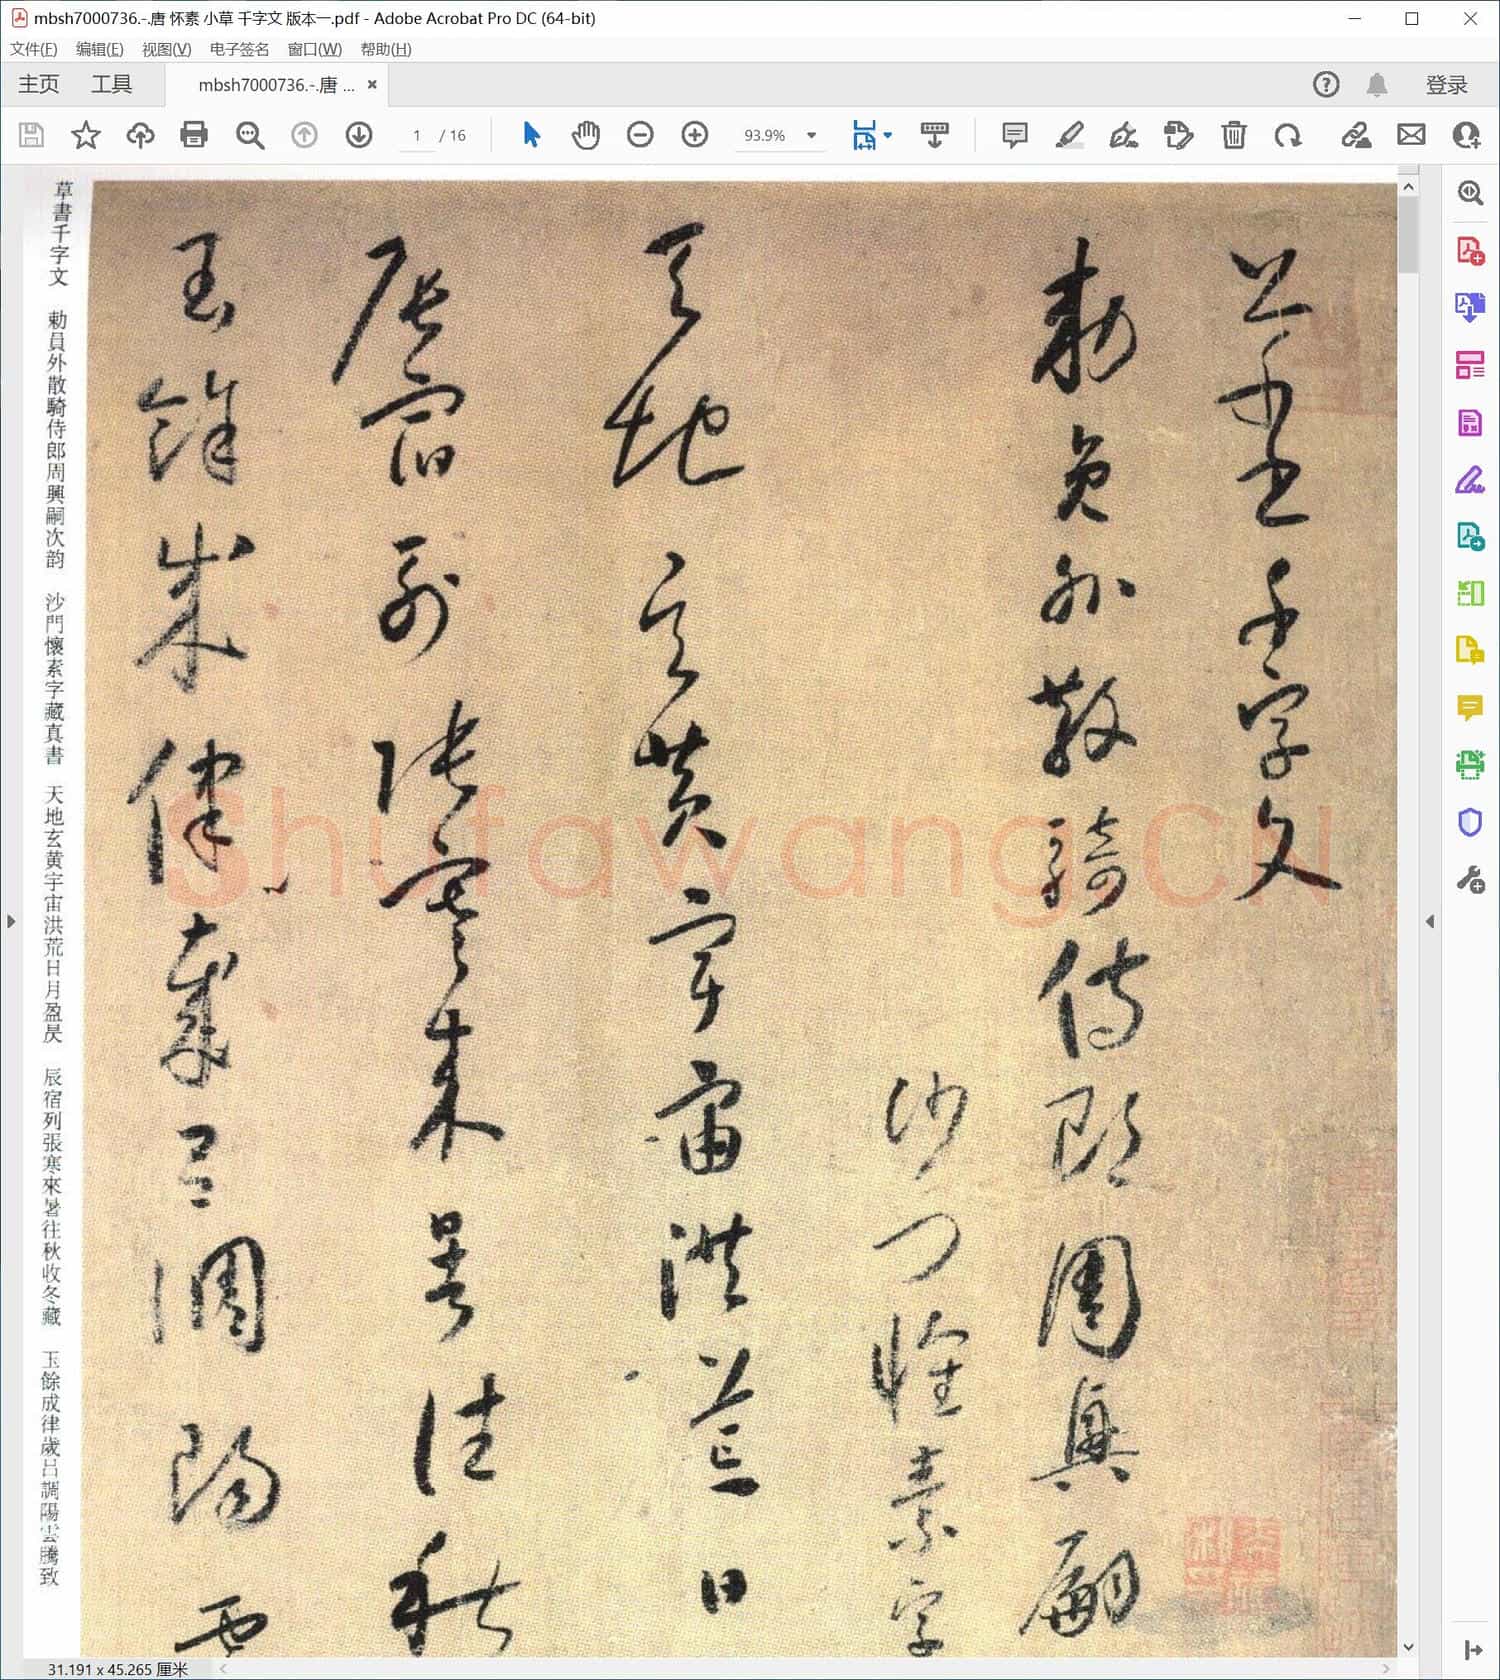 mbsh7000736.-.唐 怀素 小草 千字文 版本一.pdf - Adobe Acrobat Pro DC (64-bit)
文件(F) 编辑(E) 视图(V) 电子签名 窗口(W) 帮助(H)
主页 工具 mbsh7000736.-.唐 ... 登录
1 / 16 93.9%
草書千字文
勅員外散騎侍郎周興嗣
沙門懷素字
天地玄黄宇宙洪荒日
辰宿列張寒來暑往秋
玉餘成律歲呂調陽雲
草書千字文 勅員外散騎侍郎周興嗣次韵 沙門懷素字藏真書 天地玄黄宇宙洪荒日月盈昃 辰宿列張寒來暑往秋收冬藏 玉餘成律歲呂調陽雲騰致
Shufawang.CN
31.191 x 45.265 厘米